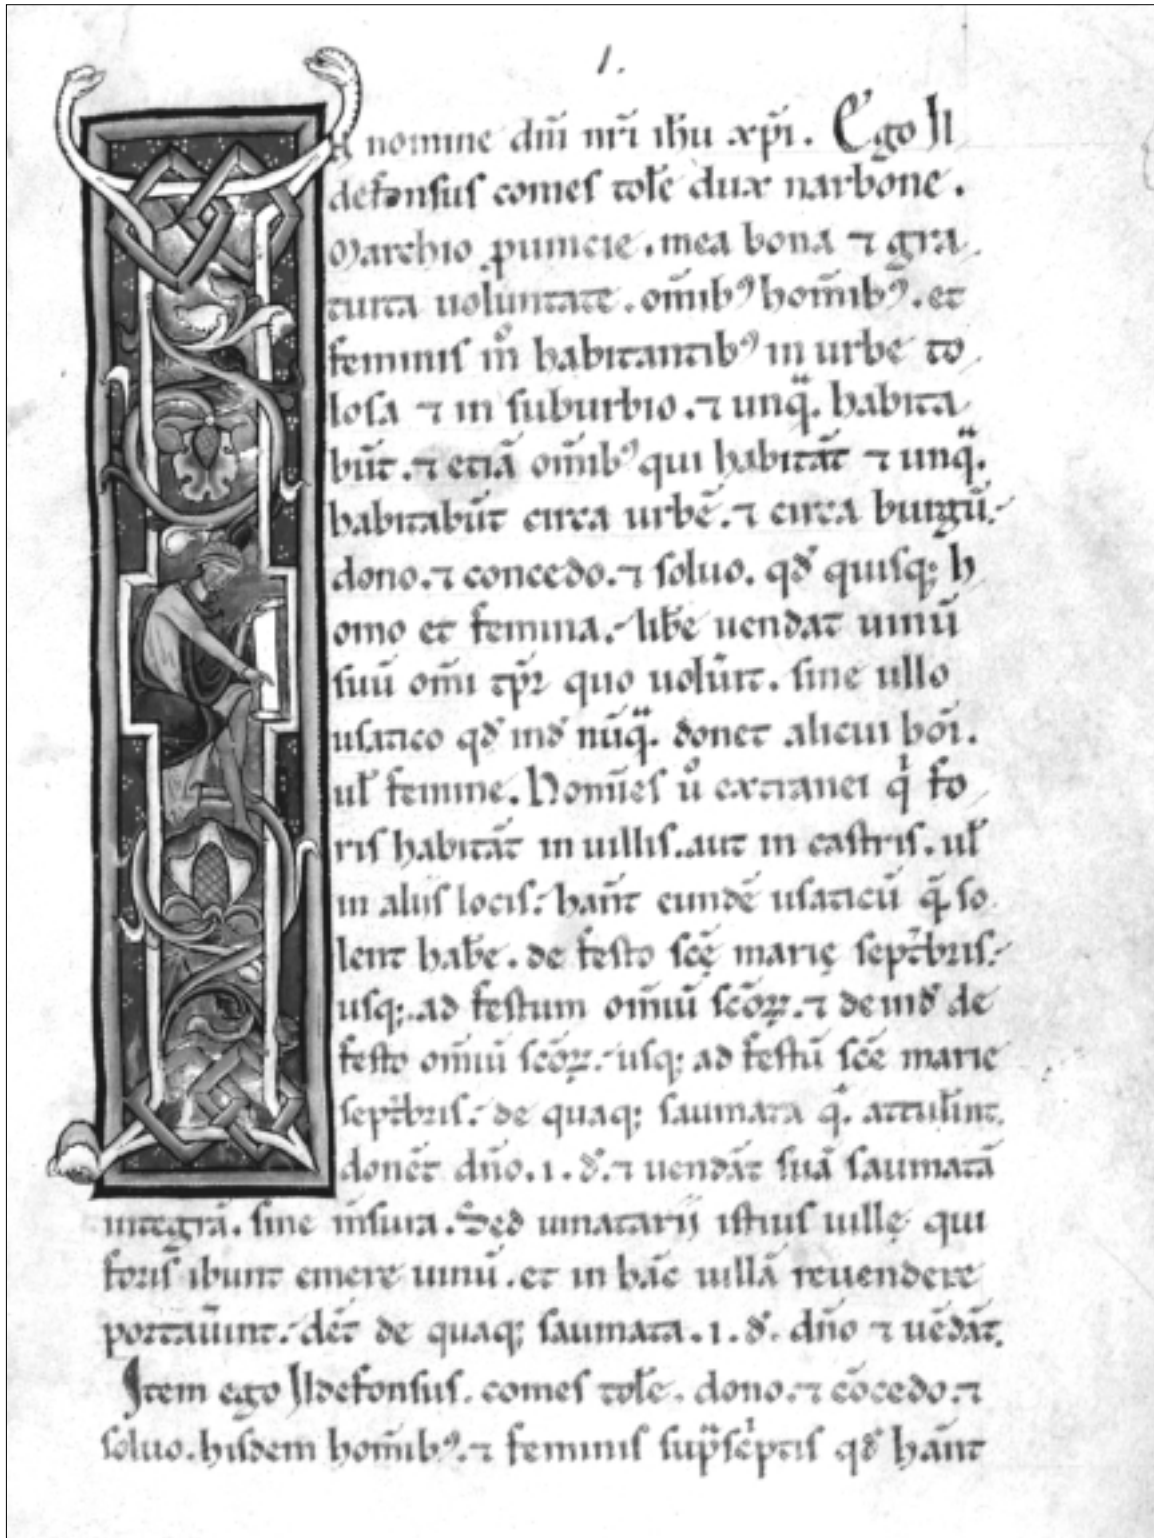 1.
N nomine dñi nr̃i ih̃u xp̃i. Ego Il
defonsus comes tol̃e dux narbone.
Marchio ꝓuincie. mea bona ⁊ gra
tuita uoluntate. om̃ibꝰ hom̃ibꝰ. et
feminis habitantibꝰ in urbe to
losa ⁊ in suburbio. ⁊ unq̃. habita
bũt. ⁊ etiã om̃ibꝰ qui habitãt ⁊ unq̃.
habitabũt circa urbẽ. ⁊ circa burgũ.
dono. ⁊ concedo. ⁊ soluo. qd̃ quisq; h
omo et femina. lib̃e uendat uinũ
suũ om̃i tp̃r quo uolũit. sine ullo
usatico qd̃ ind̃ nũq̃. donet alicui hõi.
ul̃ femine. Homĩes uͦ extranei qⁱ fo
ris habitãt in uillis. aut in castris. ul̃
in aliis locis. hañt eundẽ usaticũ q̃ so
lent hab̃e. de festo sc̃ę marię sept̃bris.
usq; ad festum om̃iũ sc̃oꝝ. ⁊ deind̃ de
festo om̃iũ sc̃oꝝ. usq; ad festũ sc̃e marie
sept̃bris. de quaq; saumata q̃. attul̃int.
donẽt dño. 1. d̃. ⁊ uendãt suã saumatã
integrã. sine m̃sura. Sed uinatarii istius uillę qui
foris ibunt emere uinũ. et in hãc uillã reuendere
portaũint. dẽt de quaq; saumata. 1. d̃. dño ⁊ uẽdãt.
Item ego Ildefonsus. comes tol̃e. dono. ⁊ cõcedo. ⁊
soluo. hisdem hom̃ibꝰ. ⁊ feminis sup̃scⁱptis qd̃ hañt